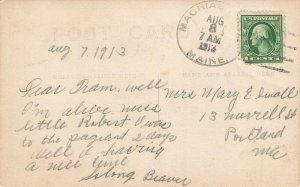 POST CARD
MACHIAS
AUG
8
7 AM
1913
MAINE.
U.S. POSTAGE
1 CENT 1
Aug 7. 1913
Dear Fram. well
I'm alive miss
little Robert
to the pageant 2 days
well & having
a nice time
So long
Mrs Mary E Small
13 Merrill St
Portland
Me